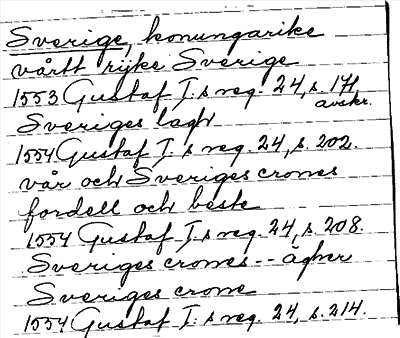 Sverige, konungarike
vårtt rijke Sverige
1553 Gustaf I:s reg. 24, s. 171,
avskr.
Sveriges lagh
1554 Gustaf I:s reg. 24, s. 202.
vår och Sveriges crones
fordell och beste
1554 Gustaf I:s reg. 24, s. 208.
Sveriges crones -- ägher
Sveriges crone
1554 Gustaf I:s reg. 24, s. 214.